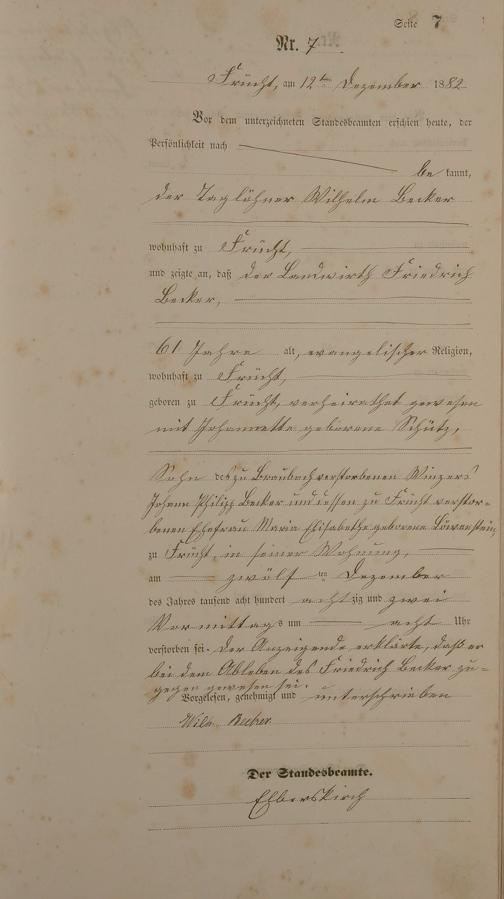 Seite 7
Nr. 7
Frücht, am 12ten Dezember 1882
Vor dem unterzeichneten Standesbeamten erschien heute, der
Persönlichkeit nach
bekannt,
der Taglöhner Wilhelm Becker
wohnhaft zu Frücht,
und zeigte an, daß der Landwirth Friedrich
Becker,
61 Jahre alt, evangelischer Religion,
wohnhaft zu Frücht,
geboren zu Frücht, verheirathet gewesen
mit Johannette geborene Schütz,
Sohn des zu Braubach verstorbenen Winzers
Johann Philipp Becker und dessen zu Frücht verstor-
benen Ehefrau Maria Elisabethe geborene Löwenstein,
zu Frücht, in seiner Wohnung,
am zwölften Dezember
des Jahres tausend acht hundert achtzig und zwei
Vormittags um acht Uhr
verstorben sei. Der Anzeigende erklärte, daß er
bei dem Ableben des Friedrich Becker zu-
gegen gewesen sei.
Vorgelesen, genehmigt und unterschrieben
Wilh. Becker
Der Standesbeamte.